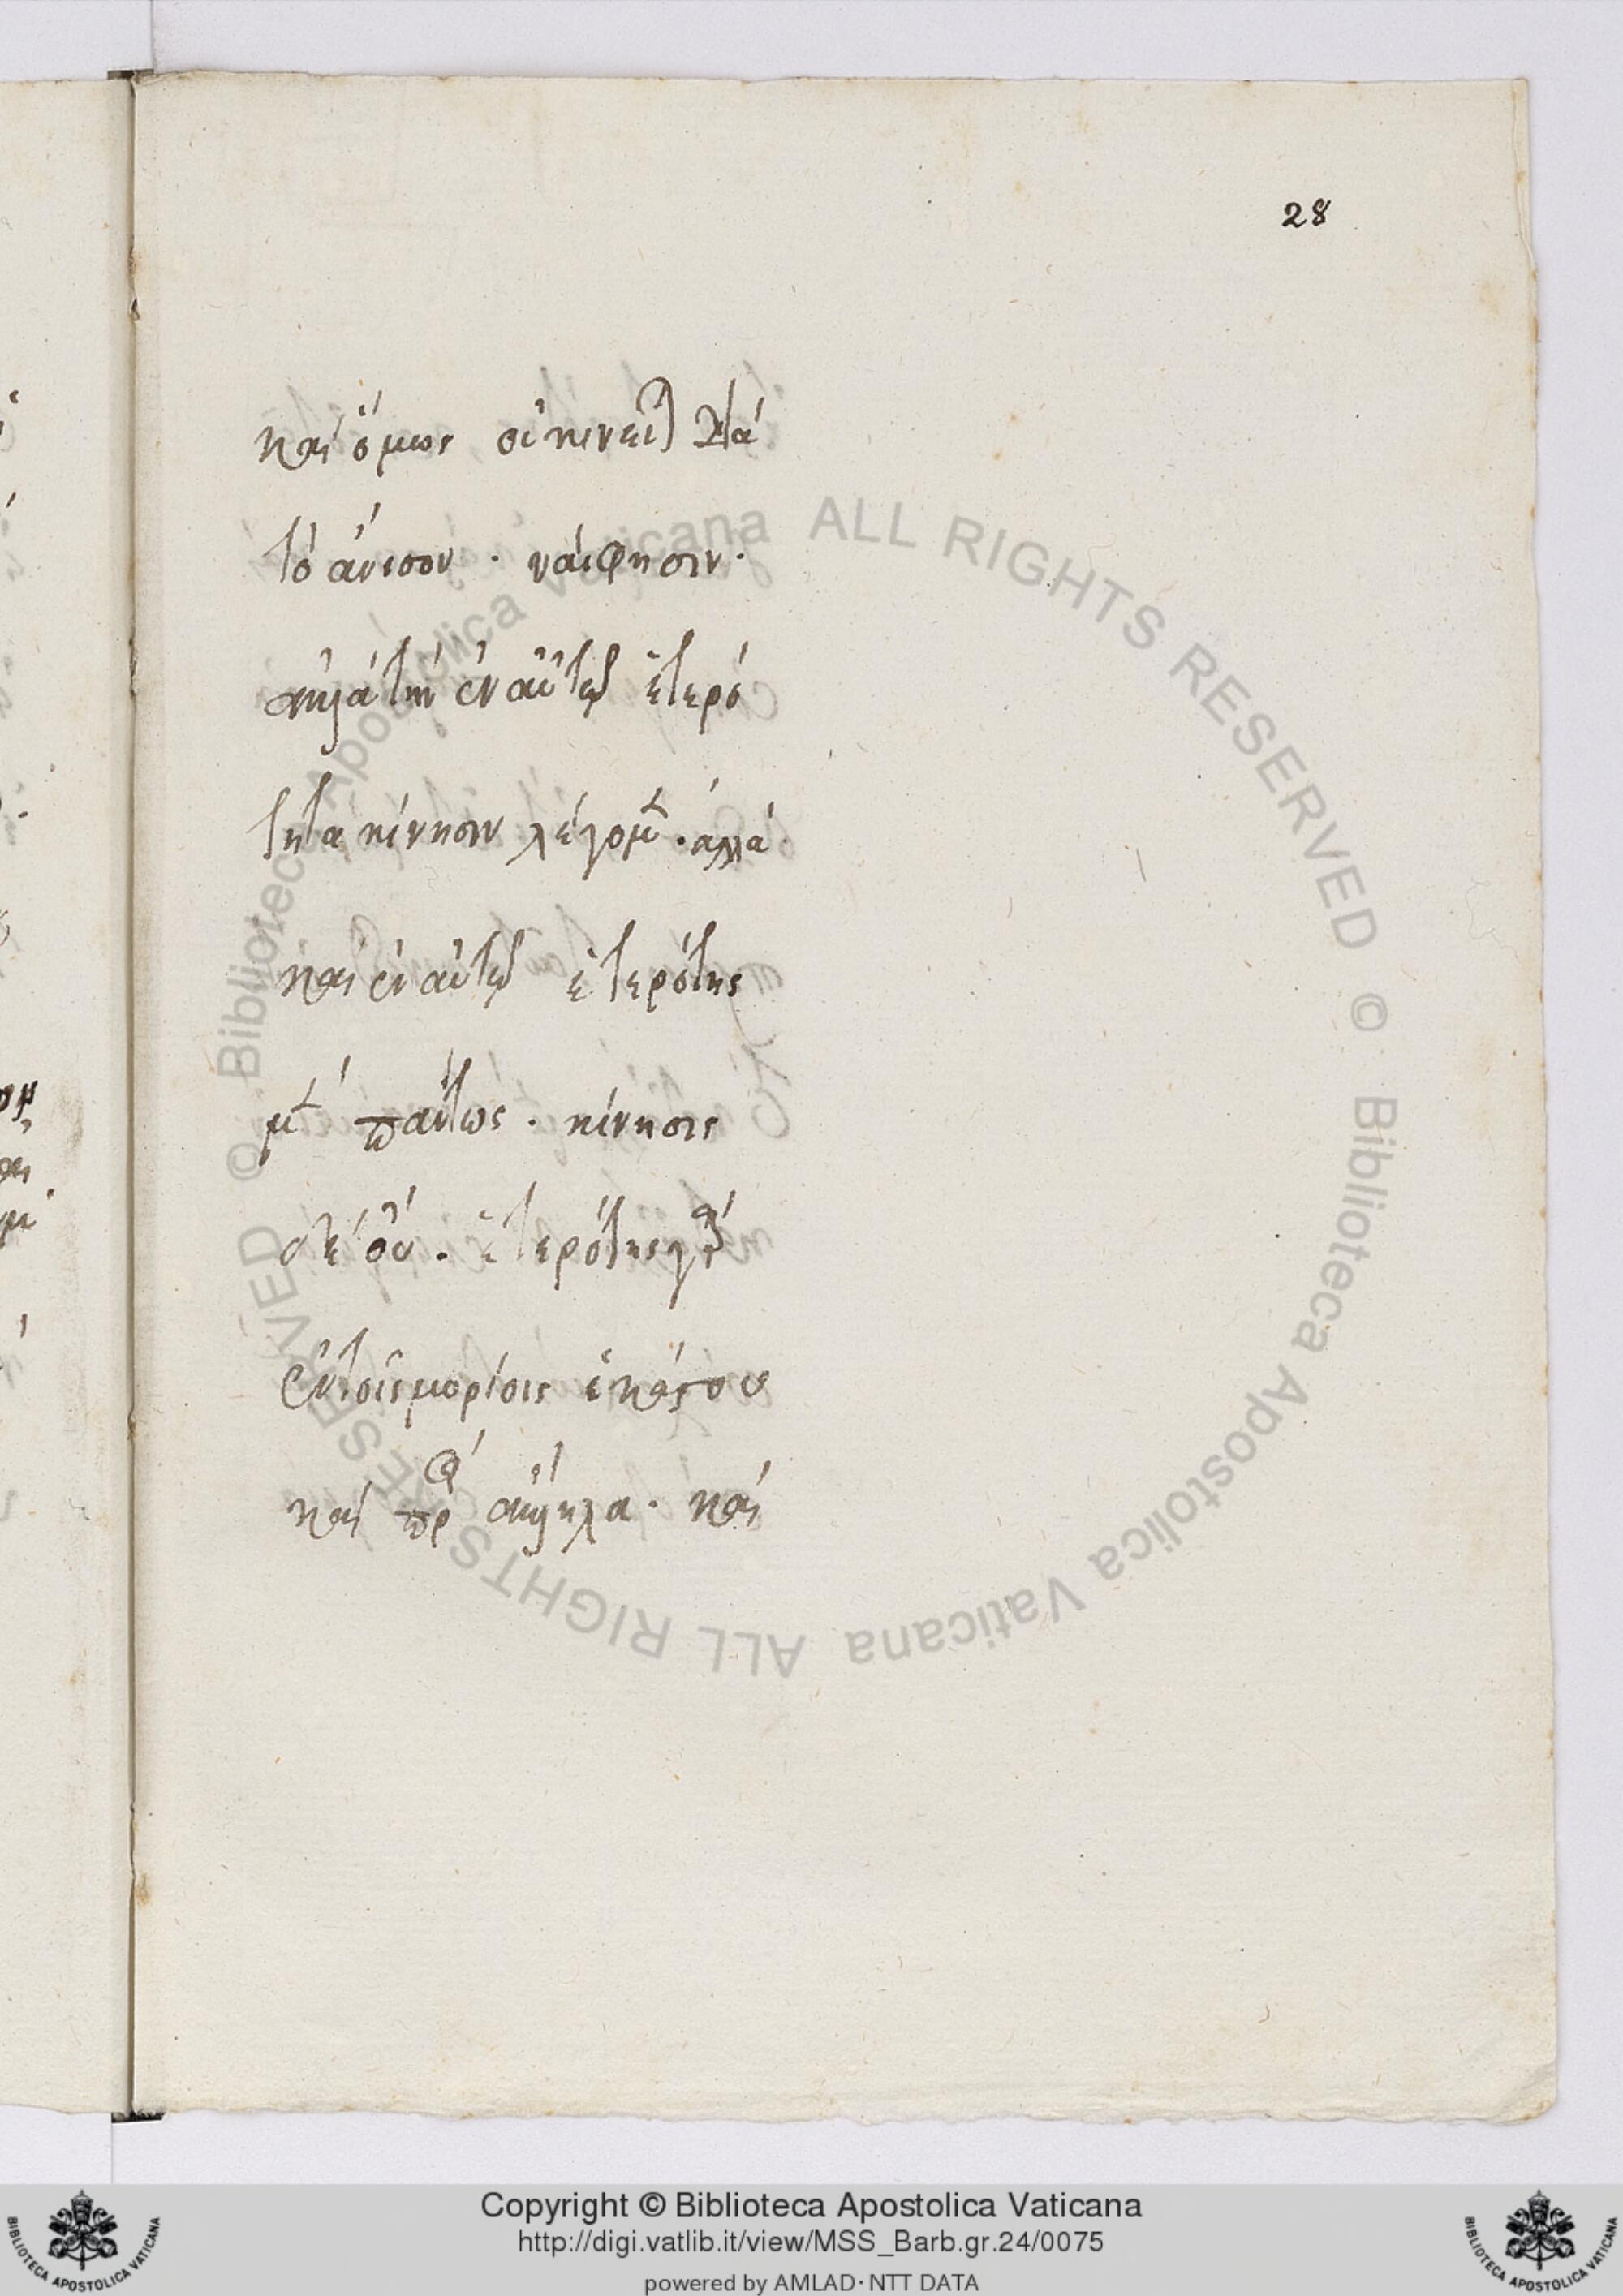 28
καὶ ὅμως οὐ κινεῖται διὰ
τὸ ἄνισον. ναί φησιν.
ἀλλὰ τὴν ἐν αὐτῷ ἑτερό
τητα κίνησιν λέγομεν. ἀλλὰ
καὶ ἐν αὐτῷ ἑτερότης
μὲν πάντως. κίνησις
δὲ οὔ. ἑτερότης γὰρ
ἐν τοῖς μορίοις ἑκάστου
καὶ πρὸς ἄλληλα. καὶ
© Biblioteca Apostolica Vaticana ALL RIGHTS RESERVED
© Biblioteca Apostolica Vaticana ALL RIGHTS RESERVED
Copyright © Biblioteca Apostolica Vaticana
http://digi.vatlib.it/view/MSS_Barb.gr.24/0075
powered by AMLAD·NTT DATA
BIBLIOTECA APOSTOLICA VATICANA
BIBLIOTECA APOSTOLICA VATICANA